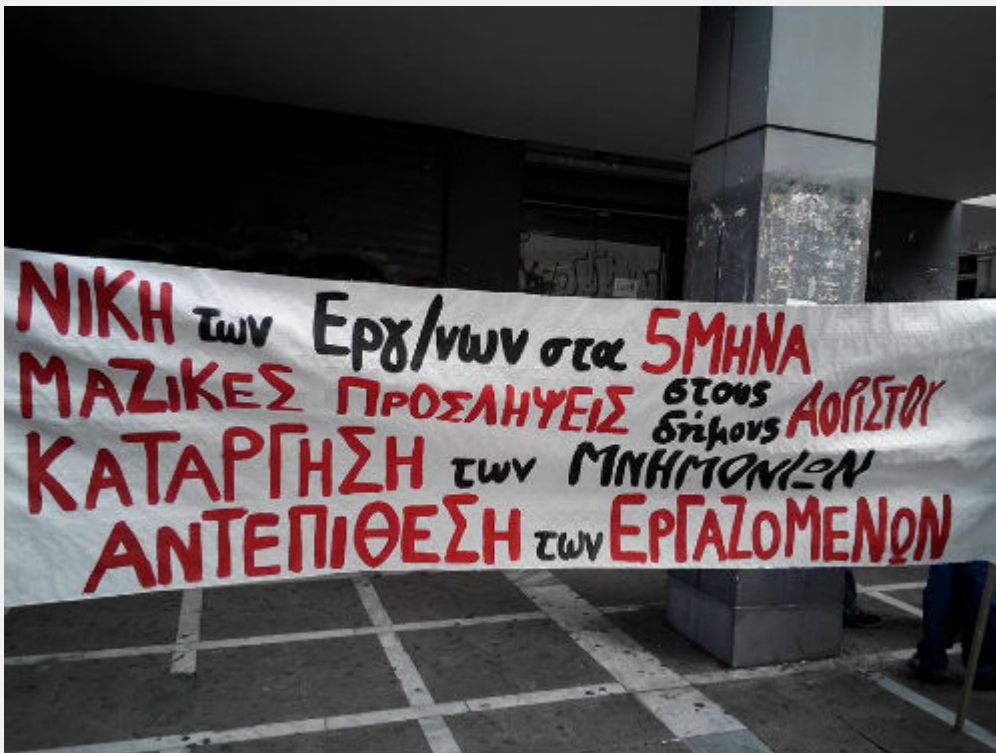 ΝΙΚΗ των Εργ/νων στα 5ΜΗΝΑ
ΜΑΖΙΚΕΣ ΠΡΟΣΛΗΨΕΙΣ στους δήμους ΑΟΡΙΣΤΟΥ
ΚΑΤΑΡΓΗΣΗ των ΜΝΗΜΟΝΙΩΝ
ΑΝΤΕΠΙΘΕΣΗ των ΕΡΓΑΖΟΜΕΝΩΝ